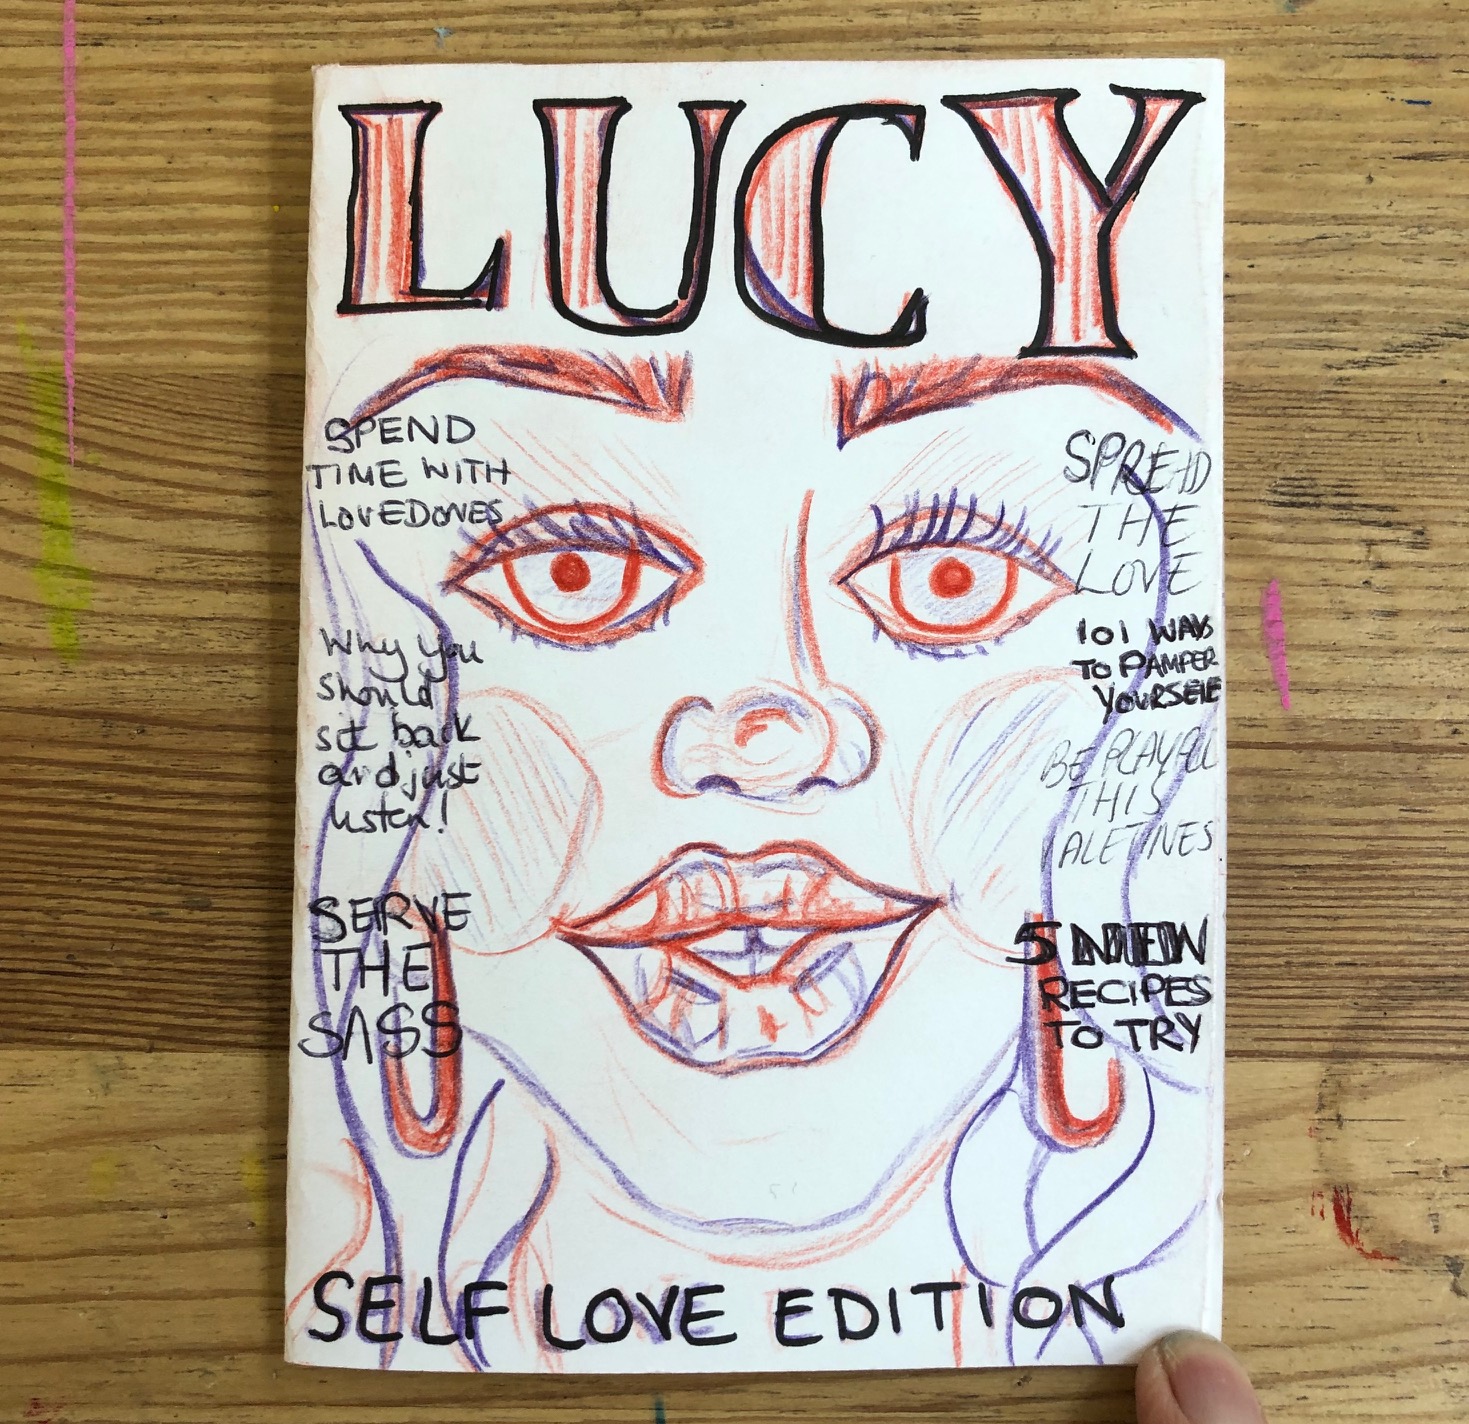 LUCY
SPEND
TIME WITH
LOVEDONES
Why you
should
sit back
and just
listen!
SERVE
THE
SASS
SPREAD
THE
LOVE
101 WAYS
TO PAMPER
YOURSELF
BE PLAYFUL
THIS
VALETINES
5 NEW
RECIPES
TO TRY
SELF LOVE EDITION